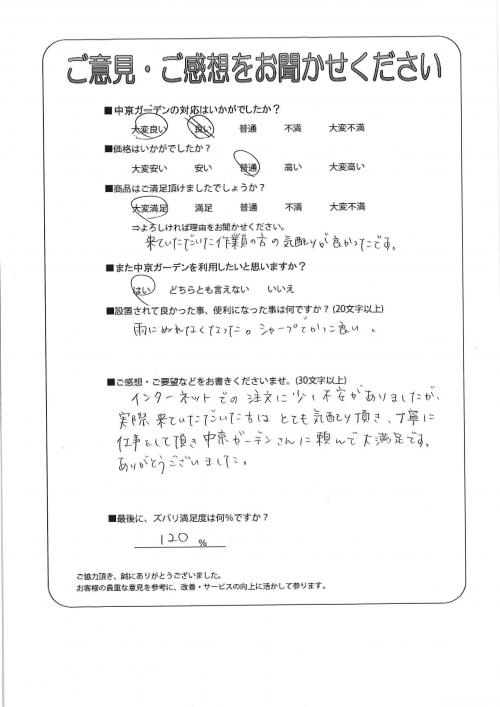 ご意見・ご感想をお聞かせください
■中京ガーデンの対応はいかがでしたか？
大変良い 良い 普通 不満 大変不満
■価格はいかがでしたか？
大変安い 安い 普通 高い 大変高い
■商品はご満足頂けましたでしょうか？
大変満足 満足 普通 不満 大変不満
⇒よろしければ理由をお聞かせください。
来ていただいた作業員の方の気配りが良かったです。
■また中京ガーデンを利用したいと思いますか？
はい どちらとも言えない いいえ
■設置されて良かった事、便利になった事は何ですか？(20文字以上)
雨にぬれなくなった。シャープでかっこ良い。
■ご感想・ご要望などをお書きくださいませ。(30文字以上)
インターネットでの注文に少し不安がありましたが、
実際、来ていただいた方は とても気配り頂き、丁寧に
仕事をして頂き 中京ガーデンさんに頼んで大満足です。
ありがとうございました。
■最後に、ズバリ満足度は何％ですか？
120 %
ご協力頂き、誠にありがとうございました。
お客様の貴重な意見を参考に、改善・サービスの向上に活かして参ります。